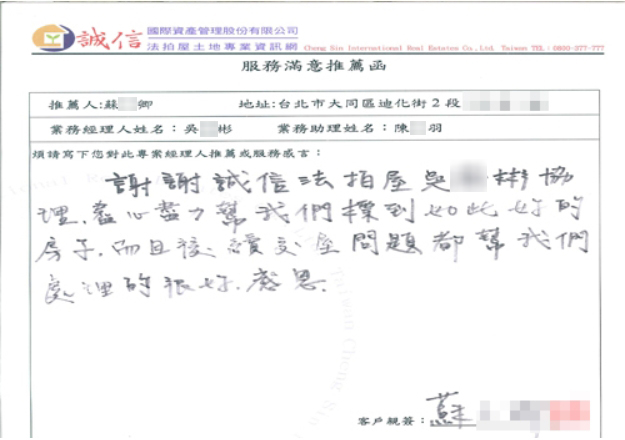 誠信 國際資產管理股份有限公司
法拍屋土地專業資訊網 Cheng Sin International Real Estates Co., Ltd. Taiwan TEL:0800-377-777
服務滿意推薦函
推薦人:蘇 卿 地址:台北市大同區迪化街2段
業務經理人姓名:吳 彬 業務助理姓名:陳 羽
煩請寫下您對此專案經理人推薦或服務感言:
謝謝誠信法拍屋吳 彬協
理,盡心盡力幫我們標到如此好的
房子,而且後續交屋問題都幫我們
處理的很好,感恩.
客戶親簽:蘇